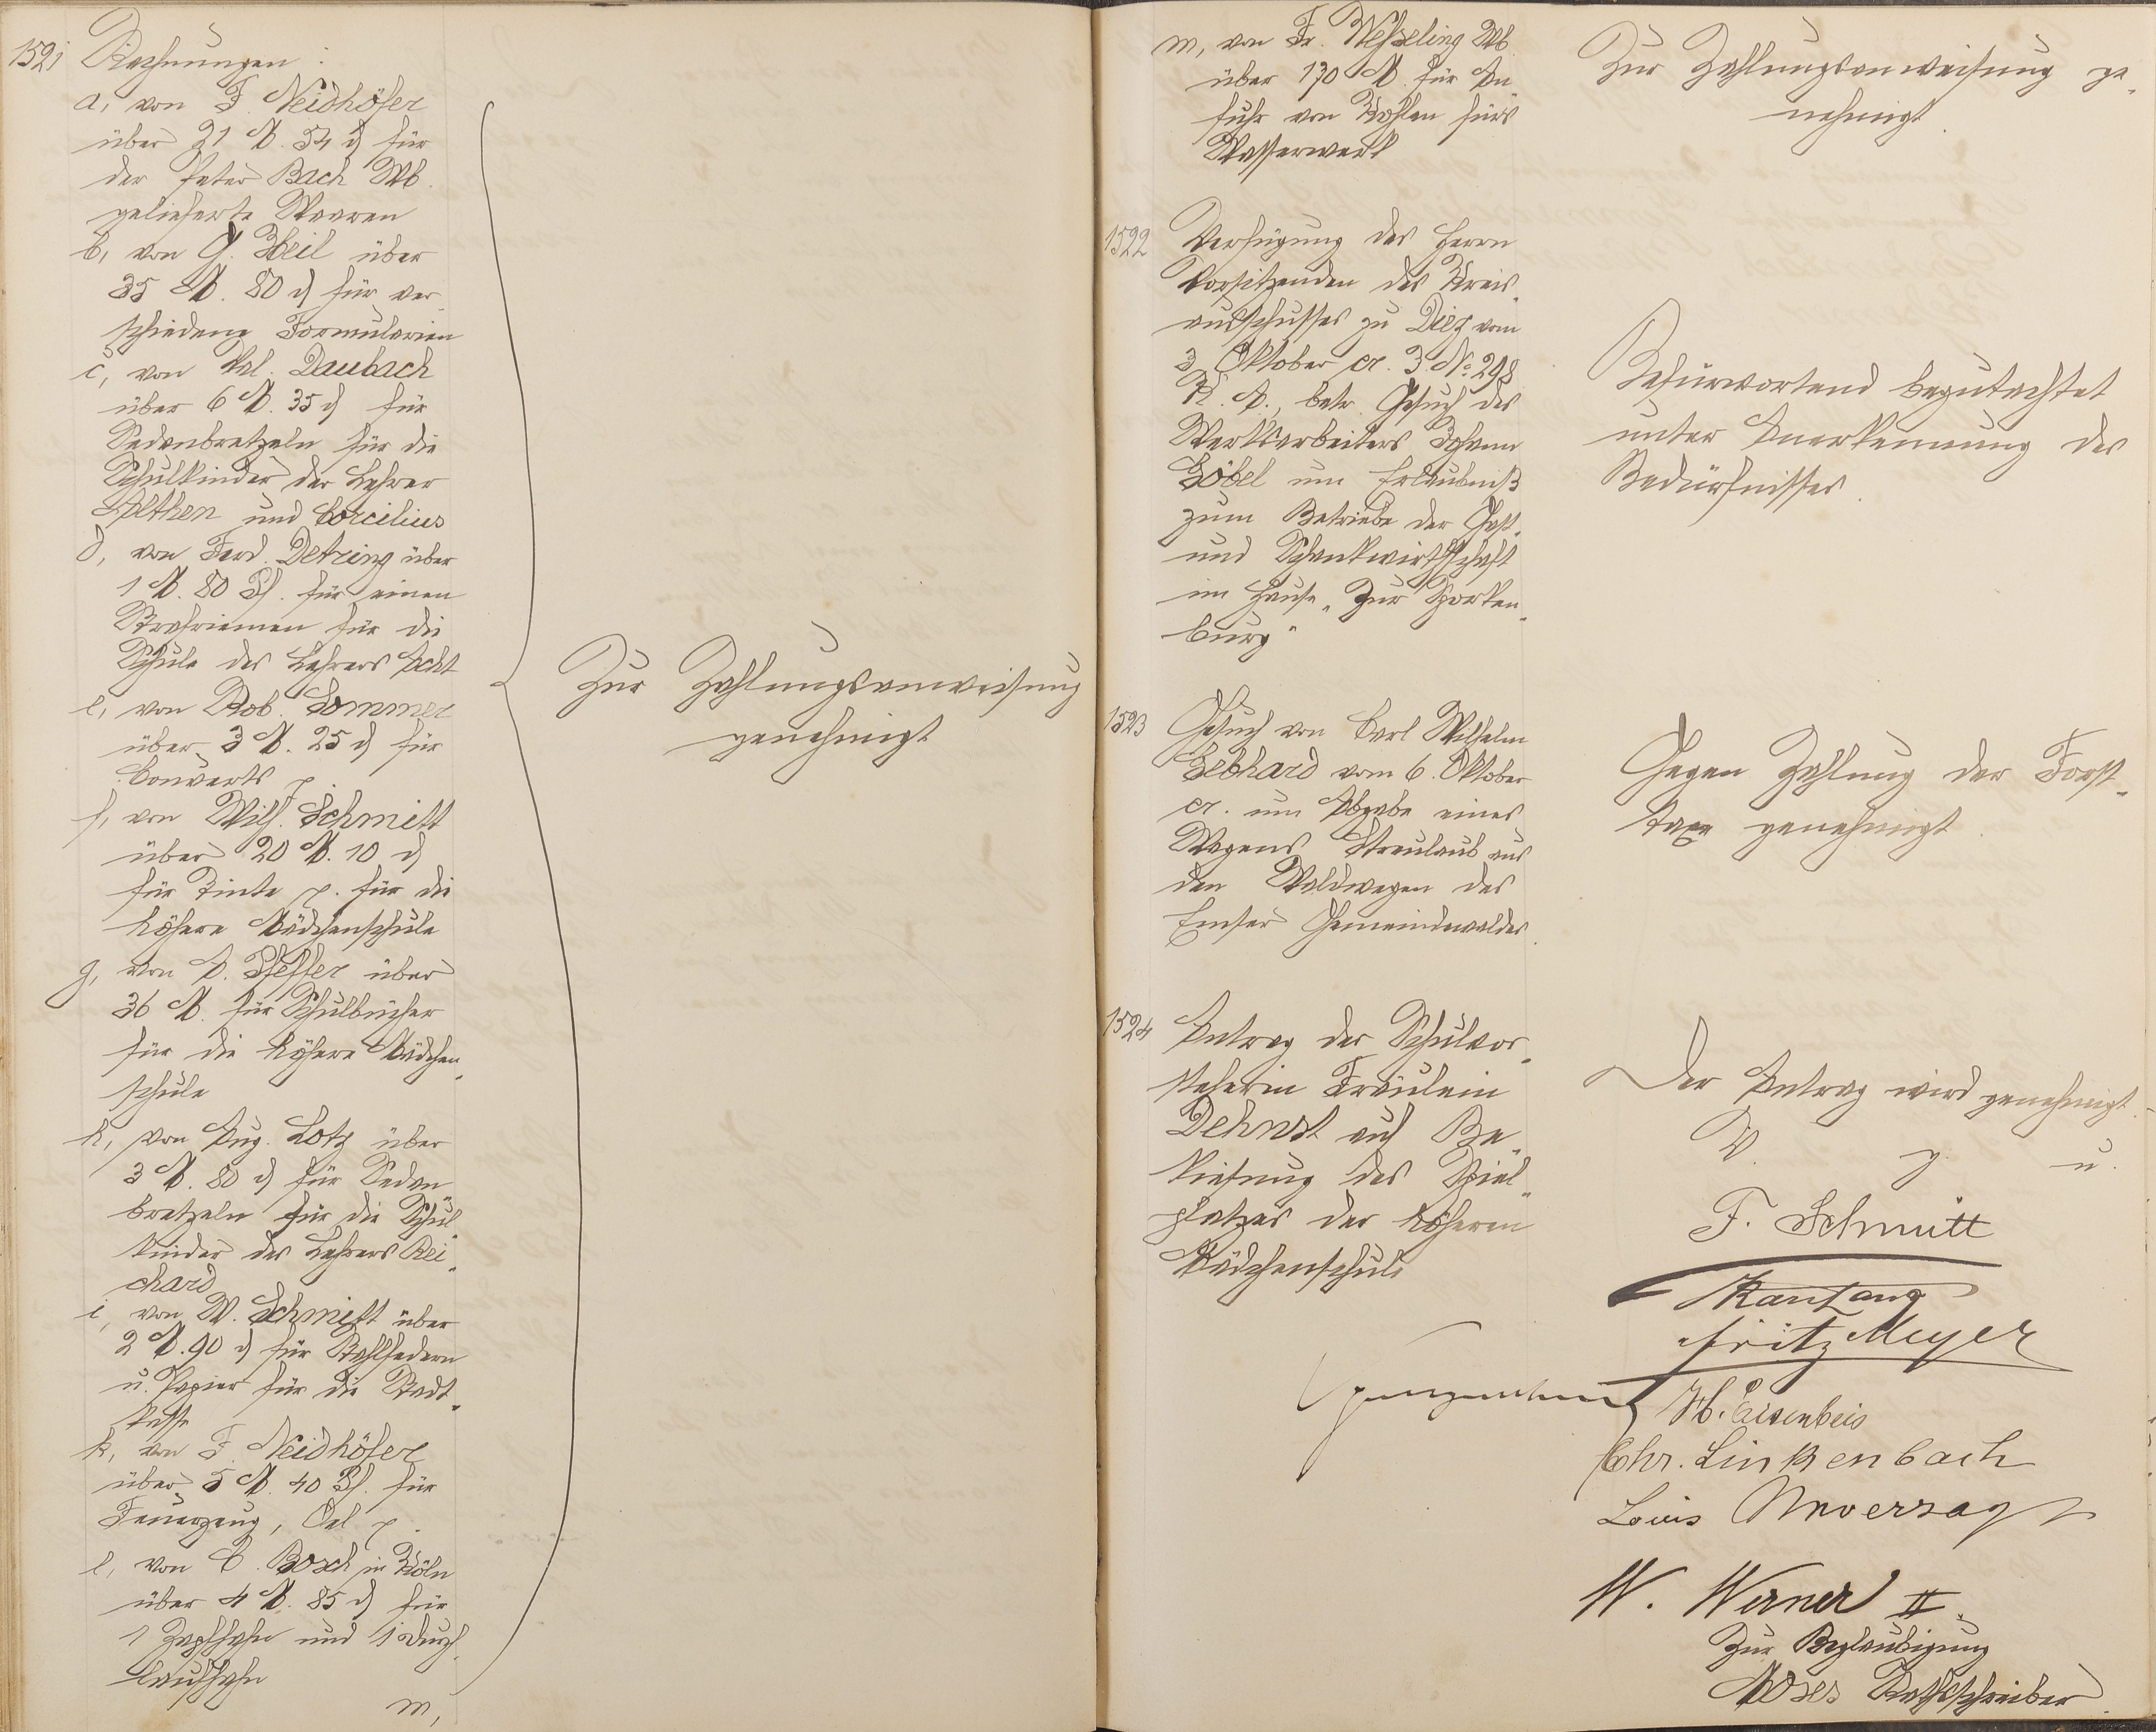 1521 Rechnungen:
a, von F. Neidhöfer
über 21 M. 54 ₰ für
der Peter Bach Wb.
gelieferte Waaren
b, von G. Heil über
35 M. 80 ₰ für ver-
schiedene Formularien
c, von Val. Daubach
über 6 M. 35 ₰ für
Sedanbretzeln für die
Schulkinder der Lehrer
Althen und Corcilius
d, von Ferd. Detring über
1 M. 80 Pf. für einen
Strafriemen für die
Schule des Lehrers Acht
e, von Rob. Sommer
über 3 M. 25 ₰ für
Couverts p.
f, von Wilh. Schmitt
über 20 M. 10 ₰
für Tinte p. für die
höhere Mädchenschule
g, von A. Pfeffer über
36 M. für Schulbücher
für die höhere Mädchen-
schule
h, von Aug. Lotz über
3 M. 80 ₰ für Sedan
bretzeln für die Schul-
kinder des Lehrers Rei-
chard
i, von W. Schmitt über
2 M. 90 ₰ für Stahlfedern
u. Papier für die Stadt-
kasse
k, von F. Neidhöfer
über 5 M. 40 Pf. für
Feuerzeug, Oel p.
l, von C. Bosch in Köln
über 4 M. 85 ₰ für
1 Zapfhahn und 1 Durch-
laufhahn
m,
Zur Zahlungsanweisung
genehmigt
m, von Fr. Weßeling Wb.
über 170 M für An-
fuhr von Kohlen fürs
Wasserwerk
Zur Zahlungsanweisung ge-
nehmigt.
1522 Verfügung des Herrn
Vorsitzenden des Kreis-
ausschusses zu Diez vom
3. Oktober cr. J. No. 298
K. A., betr. Gesuch des
Werksarbeiters Johann
Göbel um Erlaubniß
zum Betriebe der Gast-
und Schankwirthschaft
im Hause „Zur Sporken-
burg"
Befürwortend begutachtet
unter Anerkennung des
Bedürfnisses.
1523 Gesuch von Carl Wilhelm
Gebhard vom 6. Oktober
cr. um Abgabe eines
Wagens Streulaub aus
den Waldwegen des
Emser Gemeindewaldes.
Gegen Zahlung der Forst-
taxe genehmigt.
1524 Antrag der Schulvor-
steherin Fräulein
Dehnst auf Be-
kiesung des Spiel-
platzes der höheren
Mädchenschule
Der Antrag wird genehmigt.
V. g. u.
F. Schmitt
Fritz Meyer
H. Eisenbeis
Chr. Linkenbach
Louis Unverzagt
W. Werner II.
Zur Beglaubigung
Moses Rathsschreiber.